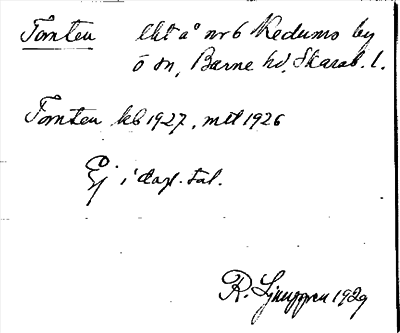 Tomten lht å nr 6 Kedums by
ö sn, Barne hd, Skarab. l.
Tomten kb 1927, mtl 1926
Ej i dagl. tal.
R. Ljunggren 1929